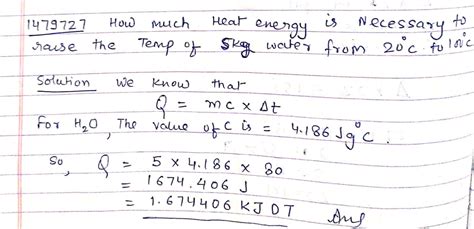 1479727 How much Heat energy is Necessary to
raise the Temp of 5kg water from 20°c to 100°c
Solution We know that
Q = mc x Δt
For H₂O, The value of c is = 4.186 J g°c.
So, Q = 5 x 4.186 x 80
= 1674.406 J
= 1.674406 KJ DT Ans